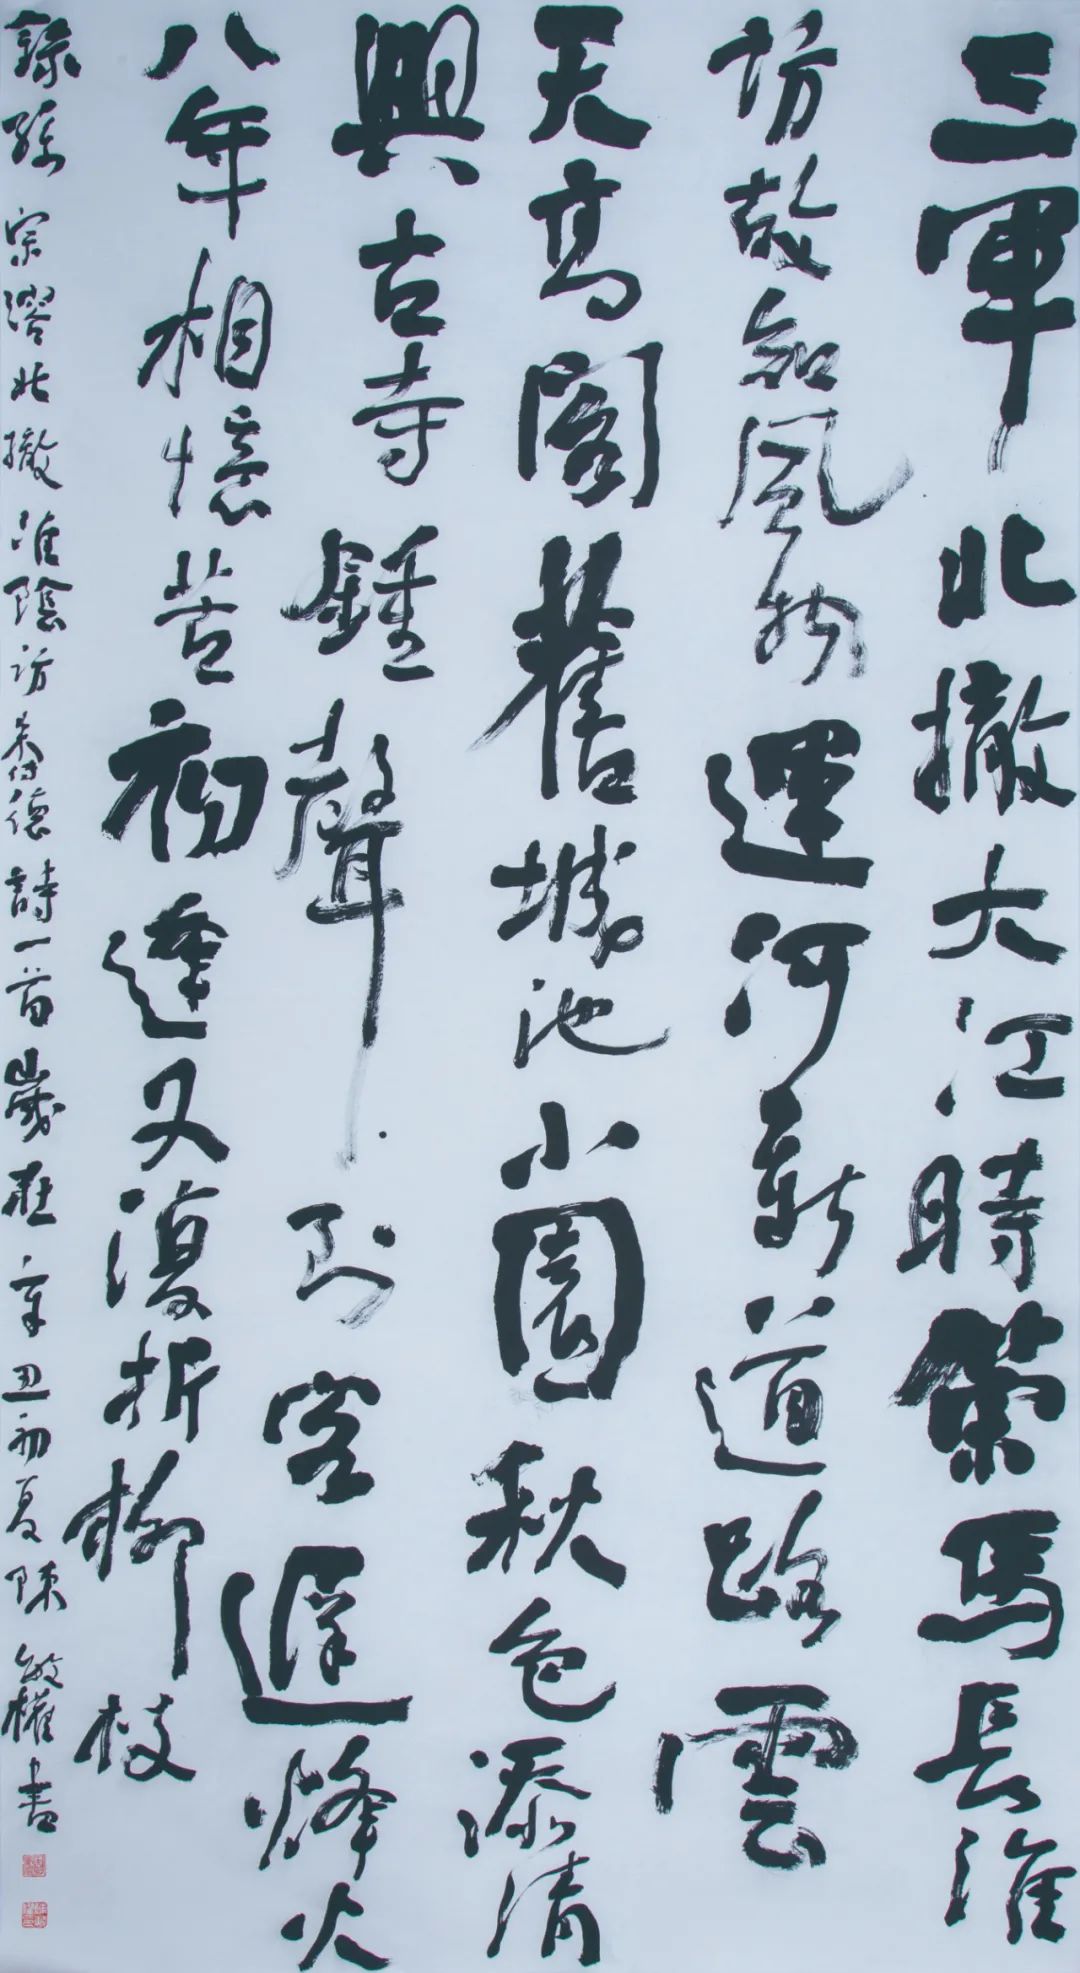 三軍北撤大江時策馬長淮
訪故知風物運河新道路雲
天高閣舊城池小園秋色添清
興古寺鍾聲到客遲烽火
八年相憶苦初逢又復折柳枝
錄孫宗澪北撤淮陰訪德詩一首歲在辛丑初夏陳敏權書